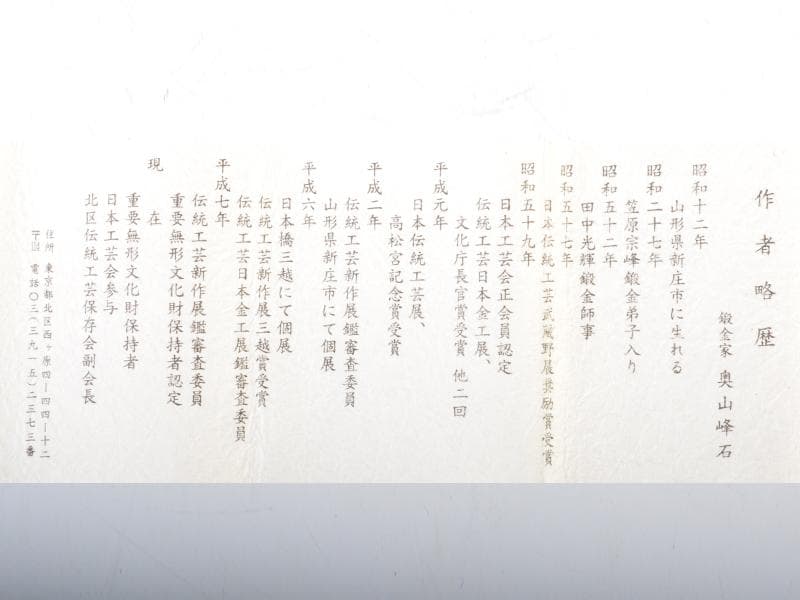 作者略歴
鍛金家 奥山峰石
昭和十二年
山形県新庄市に生れる
昭和二十七年
笠原宗峰鍛金弟子入り
昭和五十二年
田中光輝鍛金師事
昭和五十七年
日本伝統工芸武蔵野展奨励賞受賞
昭和五十九年
日本工芸会正会員認定
伝統工芸日本金工展、
文化庁長官賞受賞 他二回
平成元年
日本伝統工芸展、
高松宮記念賞受賞
平成二年
伝統工芸新作展鑑審査委員
山形県新庄市にて個展
平成六年
日本橋三越にて個展
伝統工芸新作展三越賞受賞
伝統工芸日本金工展鑑審査委員
平成七年
伝統工芸新作展鑑審査委員
重要無形文化財保持者認定
現在
重要無形文化財保持者
日本工芸会参与
北区伝統工芸保存会副会長
住所 東京都北区西ヶ原四ー四四ー十二
〒114 電話〇三(三九一五)二三七三番